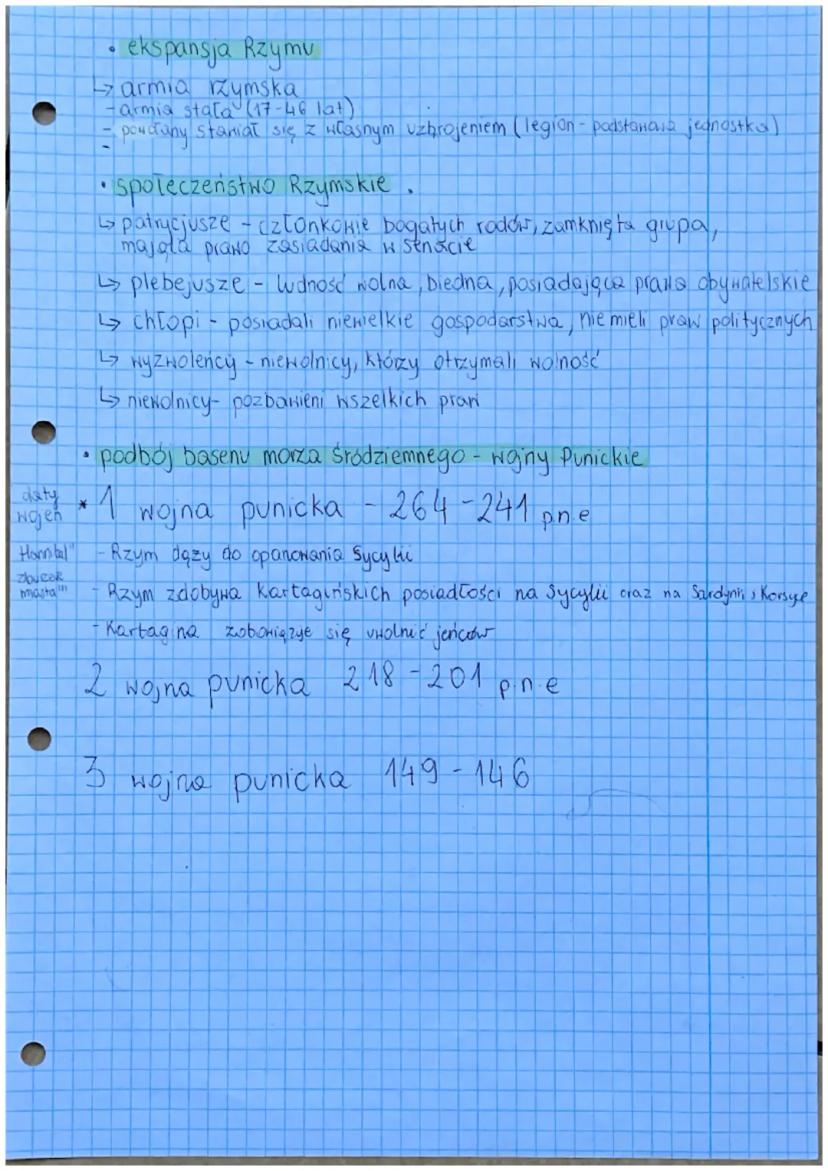 • ekspansja Rzymu
↳ armia rzymska
- armia stała (17-46 lat)
- powołany stawiał się z własnym uzbrojeniem (legion - podstawowa jednostka)
-
• społeczeństwo Rzymskie.
↳ patrycjusze - członkowie bogatych rodów, zamknięta grupa,
mająca prawo zasiadania w senacie
↳ plebejusze - ludność wolna, biedna, posiadająca prawa obywatelskie
↳ chłopi - posiadali niewielkie gospodarstwa, nie mieli praw politycznych
↳ wyzwoleńcy - niewolnicy, którzy otrzymali wolność
↳ niewolnicy - pozbawieni wszelkich praw
• podbój basenu morza śródziemnego - wojny Punickie
daty
wojen
* 1 wojna punicka - 264-241 p.n.e
- Rzym dąży do opanowania Sycylii
miasta"
- Rzym zdobywa Kartagińskich posiadłości na Sycylii oraz na Sardynii i Korsyce
- Kartagina zobowiązuje się uwolnić jeńców
2 wojna punicka 218-201 p.n.e
3 wojna punicka 149-146